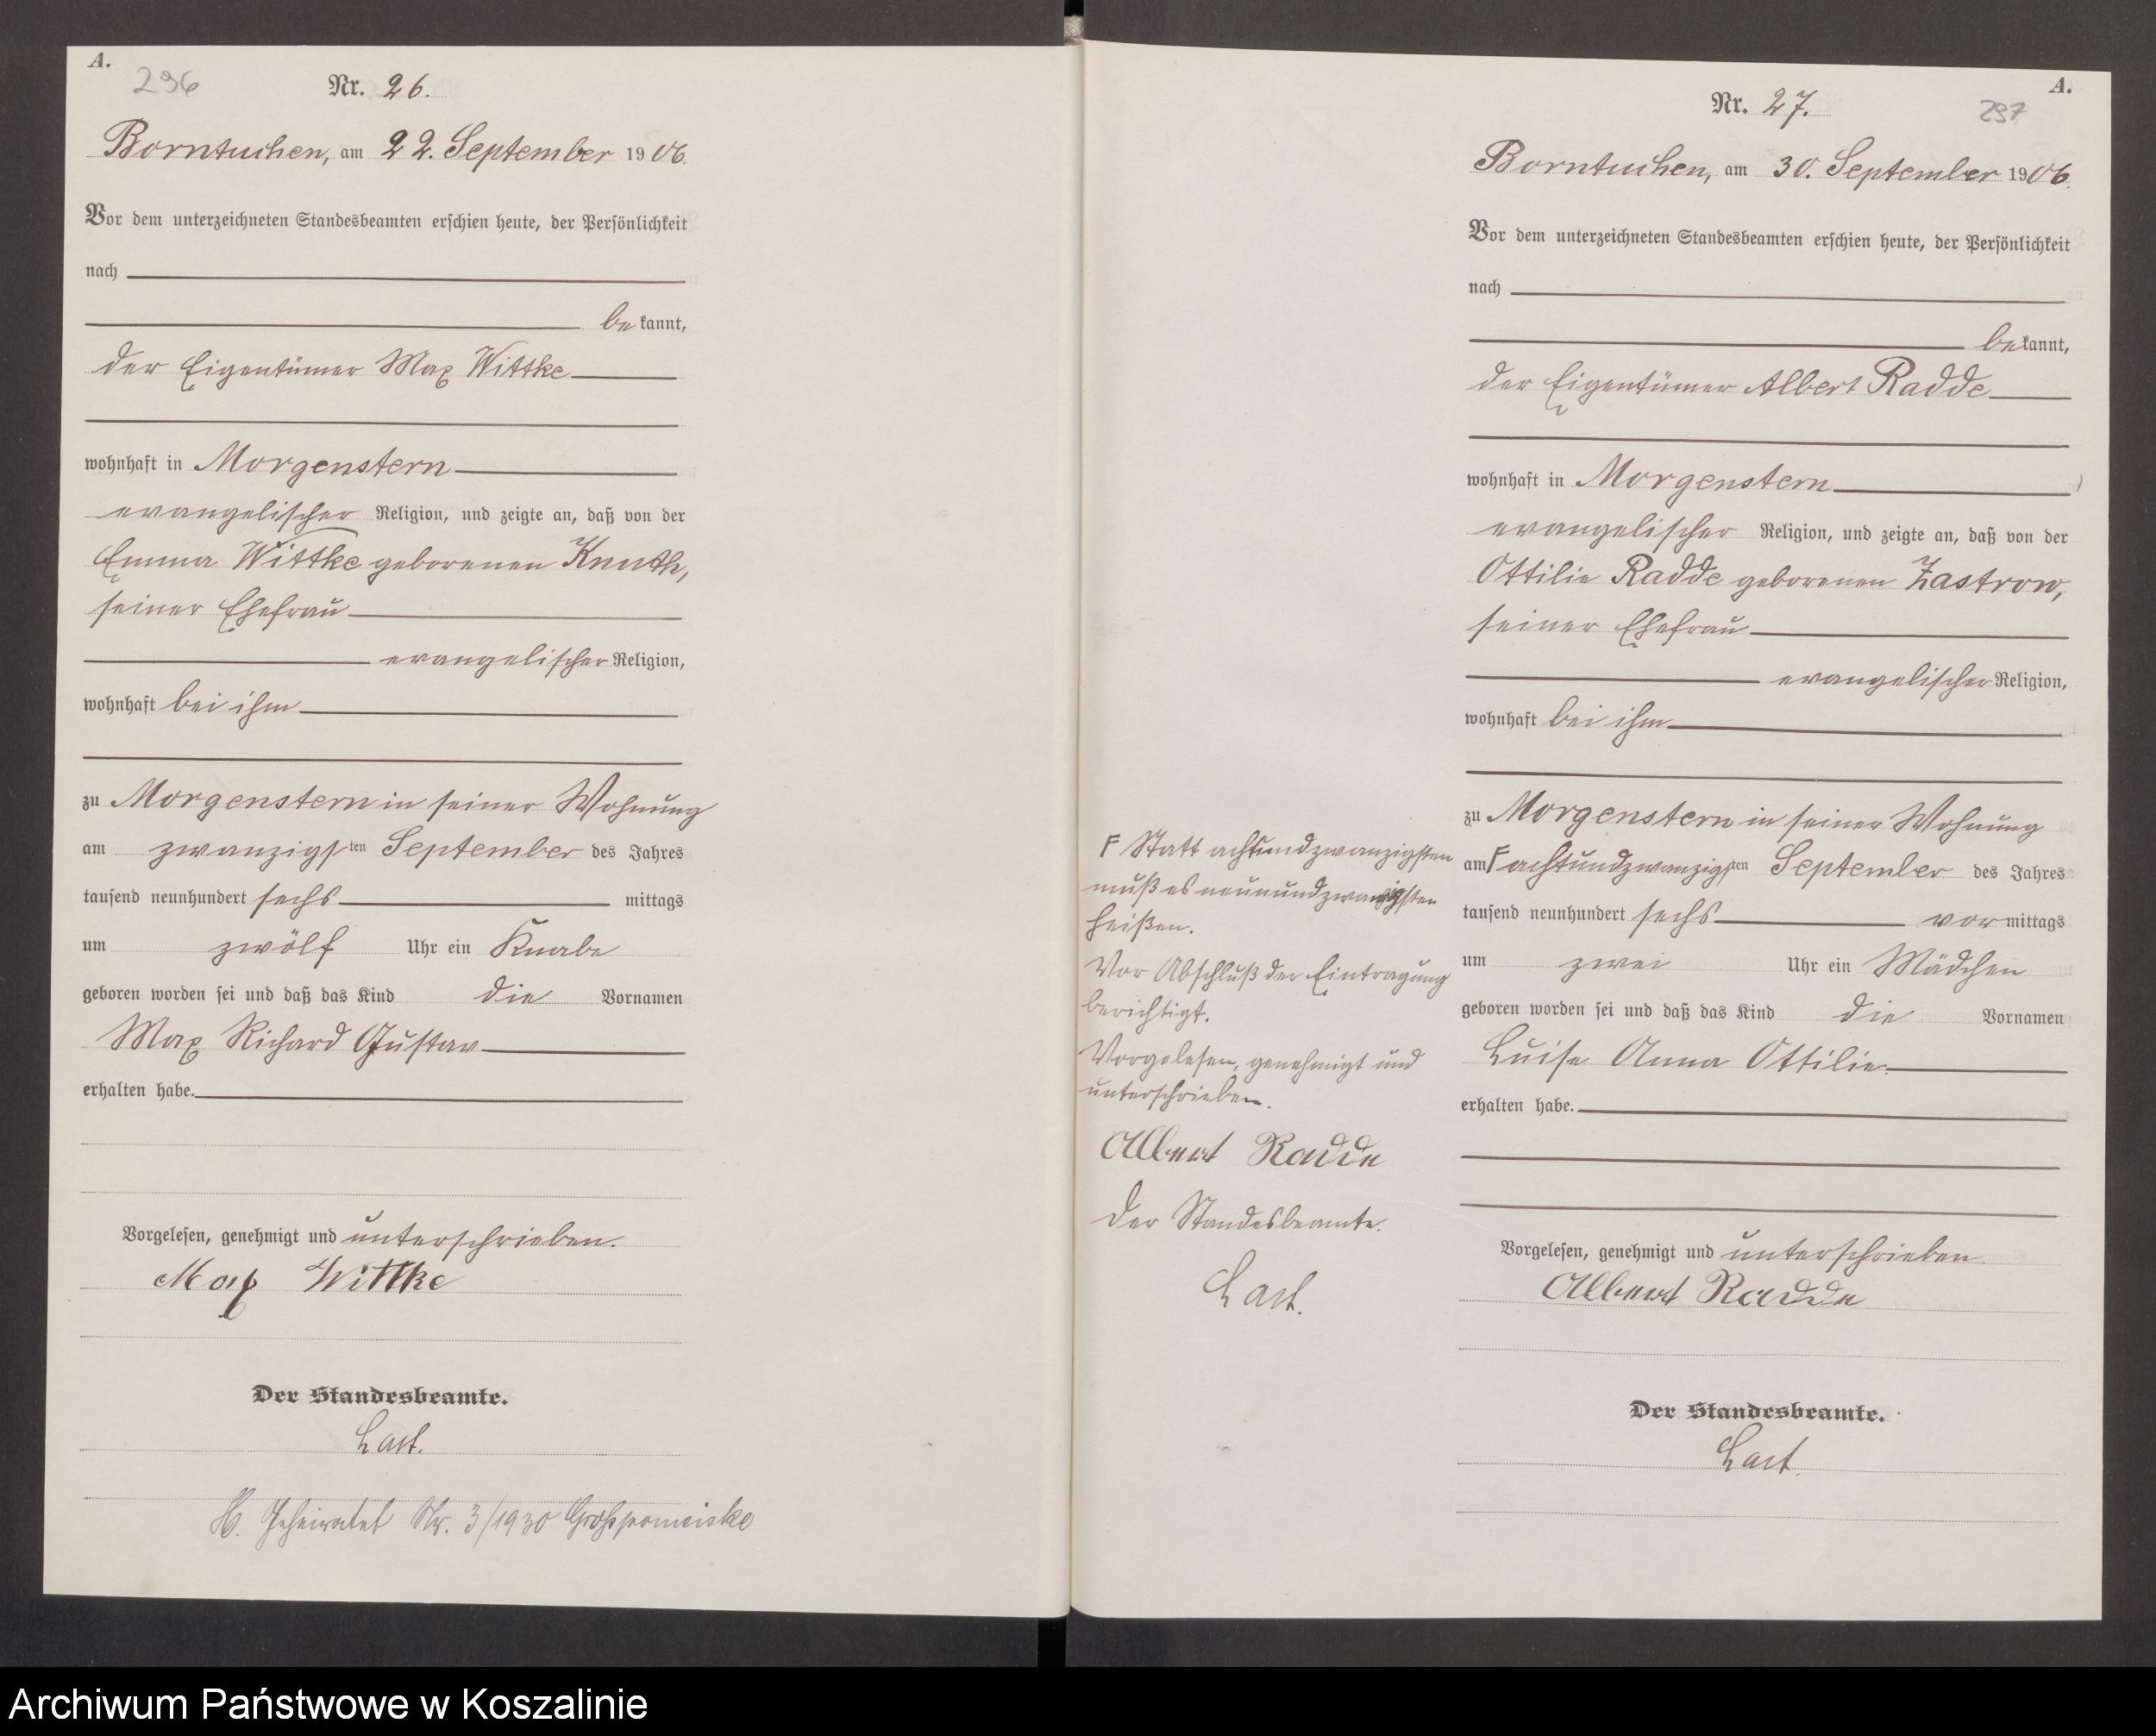 A.
296
Nr. 26.
Borntuchen, am 22. September 1906.
Vor dem unterzeichneten Standesbeamten erschien heute, der Persönlichkeit
nach
bekannt,
der Eigentümer Max Wittke
wohnhaft in Morgenstern
evangelischer Religion, und zeigte an, daß von der
Emma Wittke geborenen Knuth,
seiner Ehefrau
evangelischer Religion,
wohnhaft bei ihm
zu Morgenstern in seiner Wohnung
am zwanzigsten September des Jahres
tausend neunhundert sechs mittags
um zwölf Uhr ein Knabe
geboren worden sei und daß das Kind die Vornamen
Max Richard Gustav
erhalten habe.
Vorgelesen, genehmigt und unterschrieben.
Max Wittke
Der Standesbeamte.
Last.
H. Geheiratet Nr. 3/1930 Großpomeiske
A.
297
Nr. 27.
Borntuchen, am 30. September 1906.
Vor dem unterzeichneten Standesbeamten erschien heute, der Persönlichkeit
nach
bekannt,
der Eigentümer Albert Radde
wohnhaft in Morgenstern
evangelischer Religion, und zeigte an, daß von der
Ottilie Radde geborenen Zastrow,
seiner Ehefrau
evangelischer Religion,
wohnhaft bei ihm
zu Morgenstern in seiner Wohnung
am F achtundzwanzigsten September des Jahres
tausend neunhundert sechs vormittags
um zwei Uhr ein Mädchen
geboren worden sei und daß das Kind die Vornamen
Luise Anna Ottilie
erhalten habe.
Vorgelesen, genehmigt und unterschrieben
Albert Radde
Der Standesbeamte.
Last.
F Statt achtundzwanzigsten
muß es neunundzwanzigsten
heißen.
Vor Abschluß der Eintragung
berichtigt.
Vorgelesen, genehmigt und
unterschrieben.
Albert Radde
Der Standesbeamte.
Last.
Archiwum Państwowe w Koszalinie